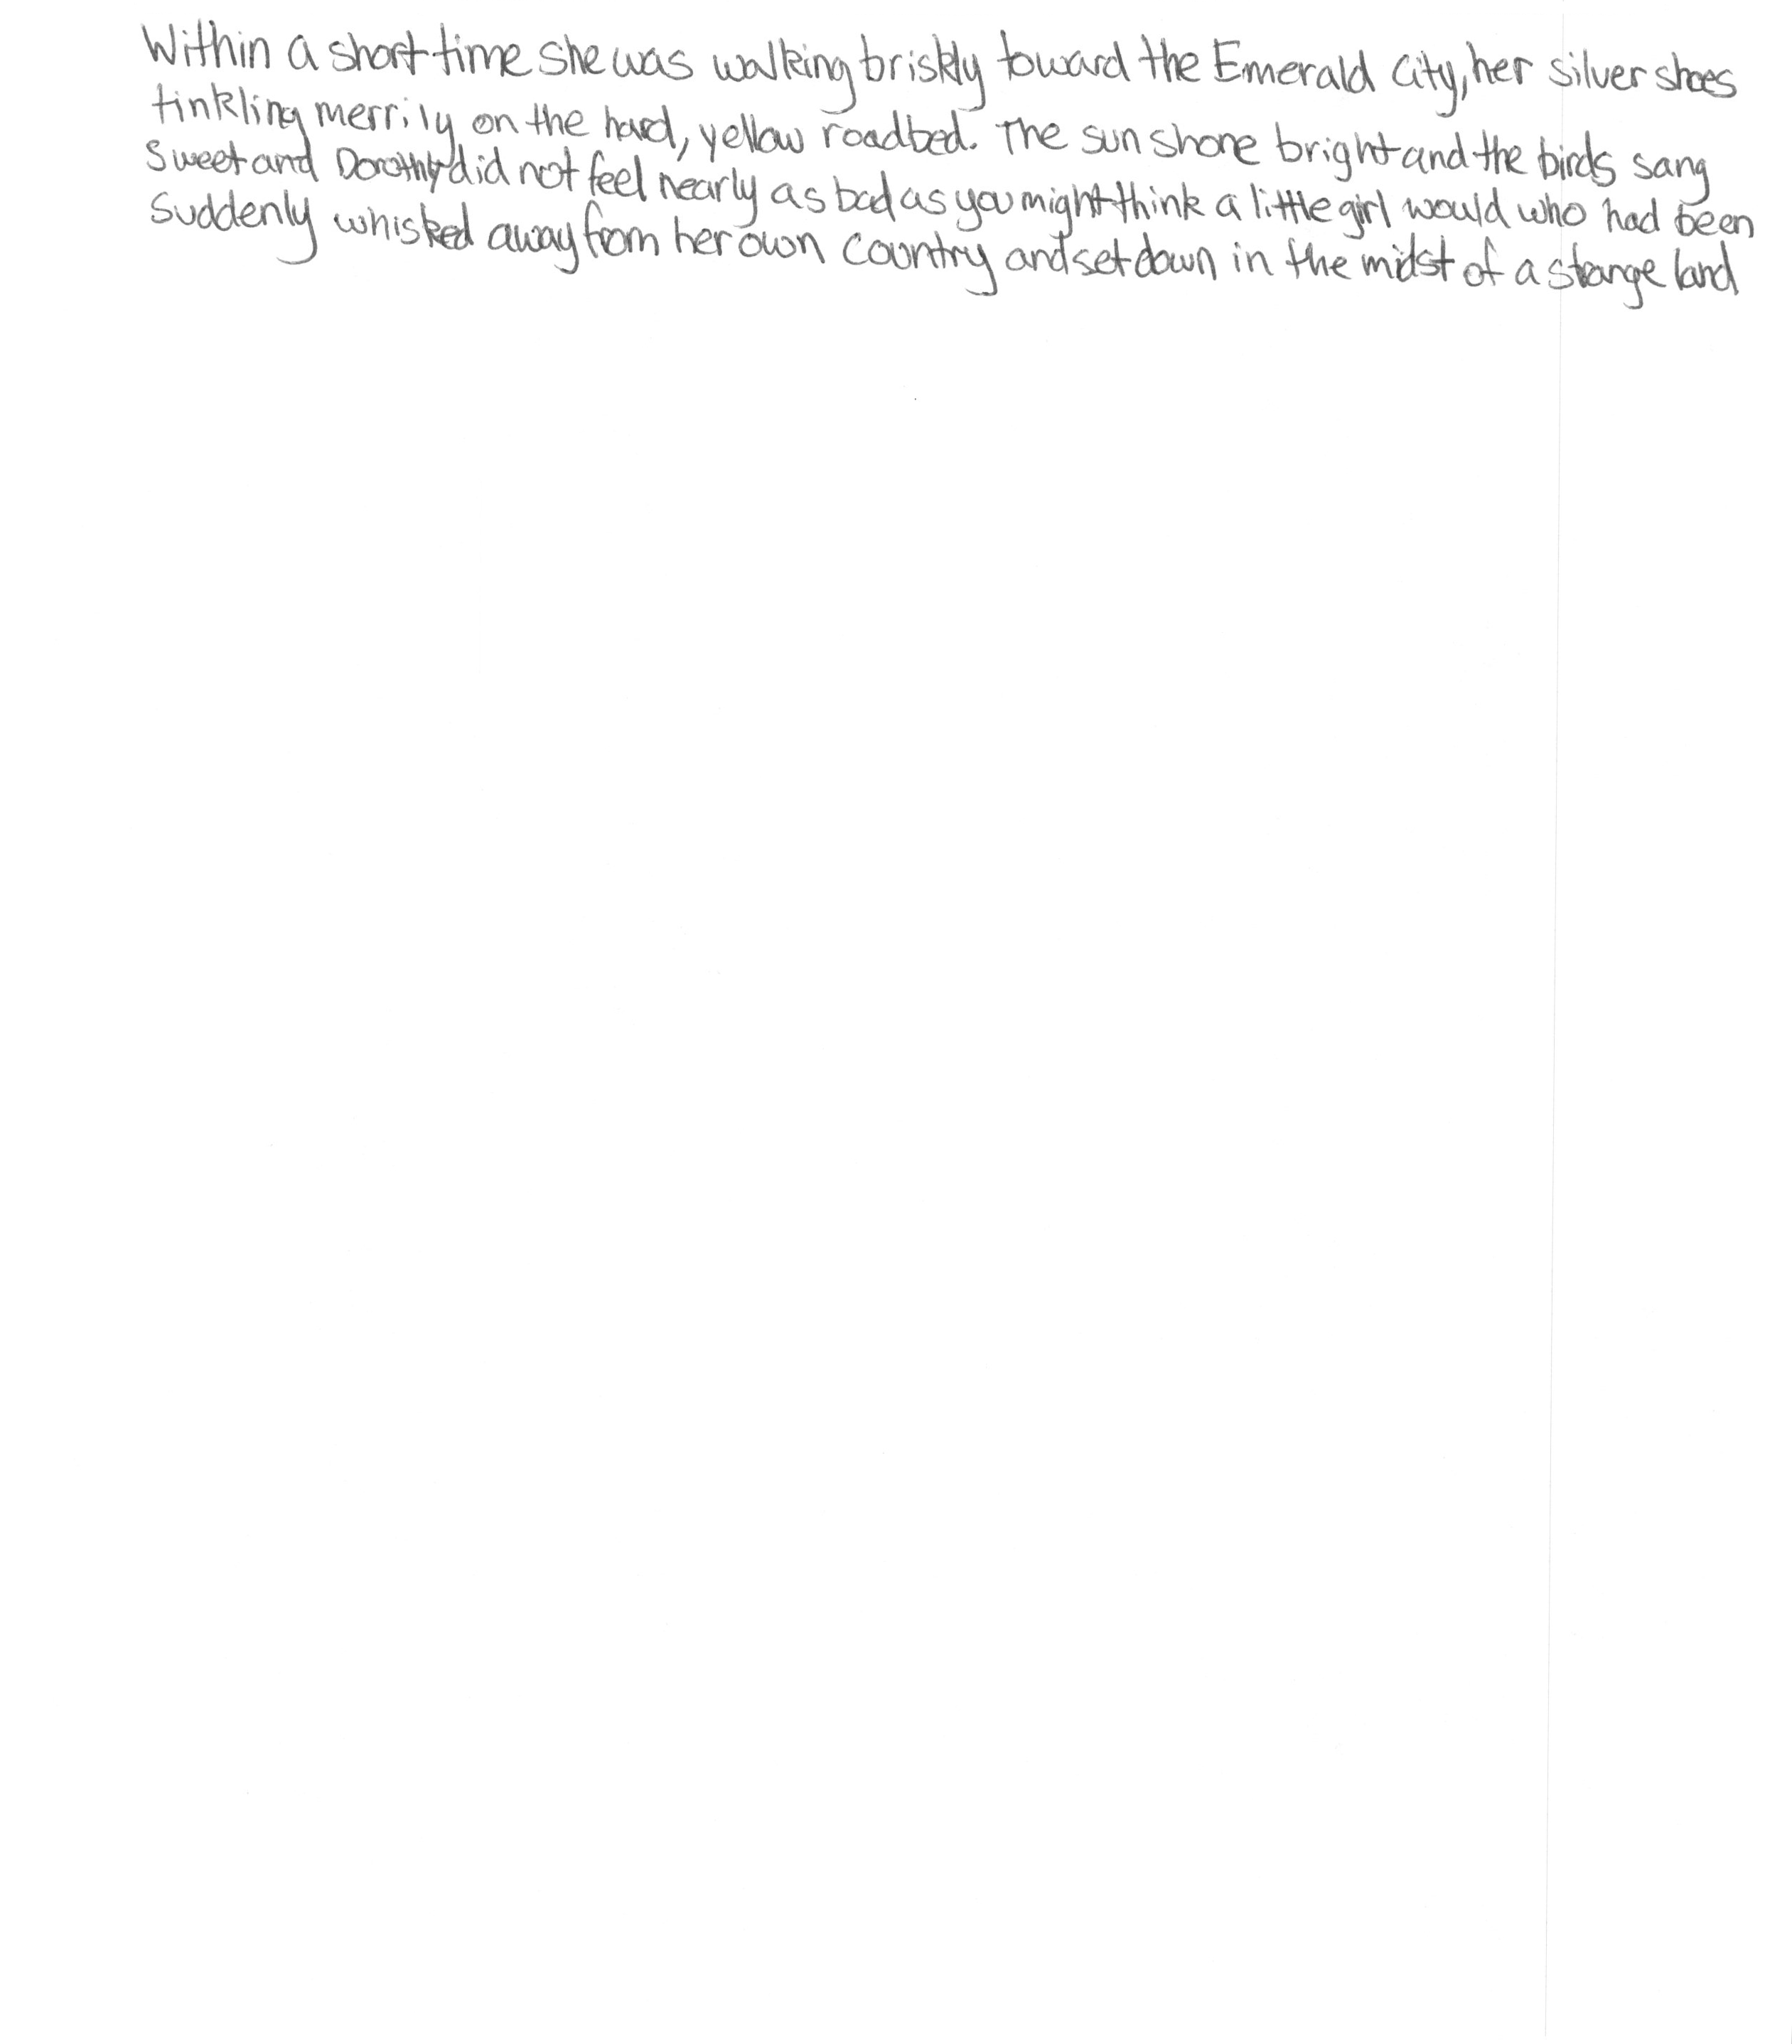 Within a short time she was walking briskly toward the Emerald City, her silver shoes
tinkling merrily on the hard, yellow roadbed. The sun shone bright and the birds sang
sweet and Dorothy did not feel nearly as bad as you might think a little girl would who had been
suddenly whisked away from her own country and set down in the midst of a strange land